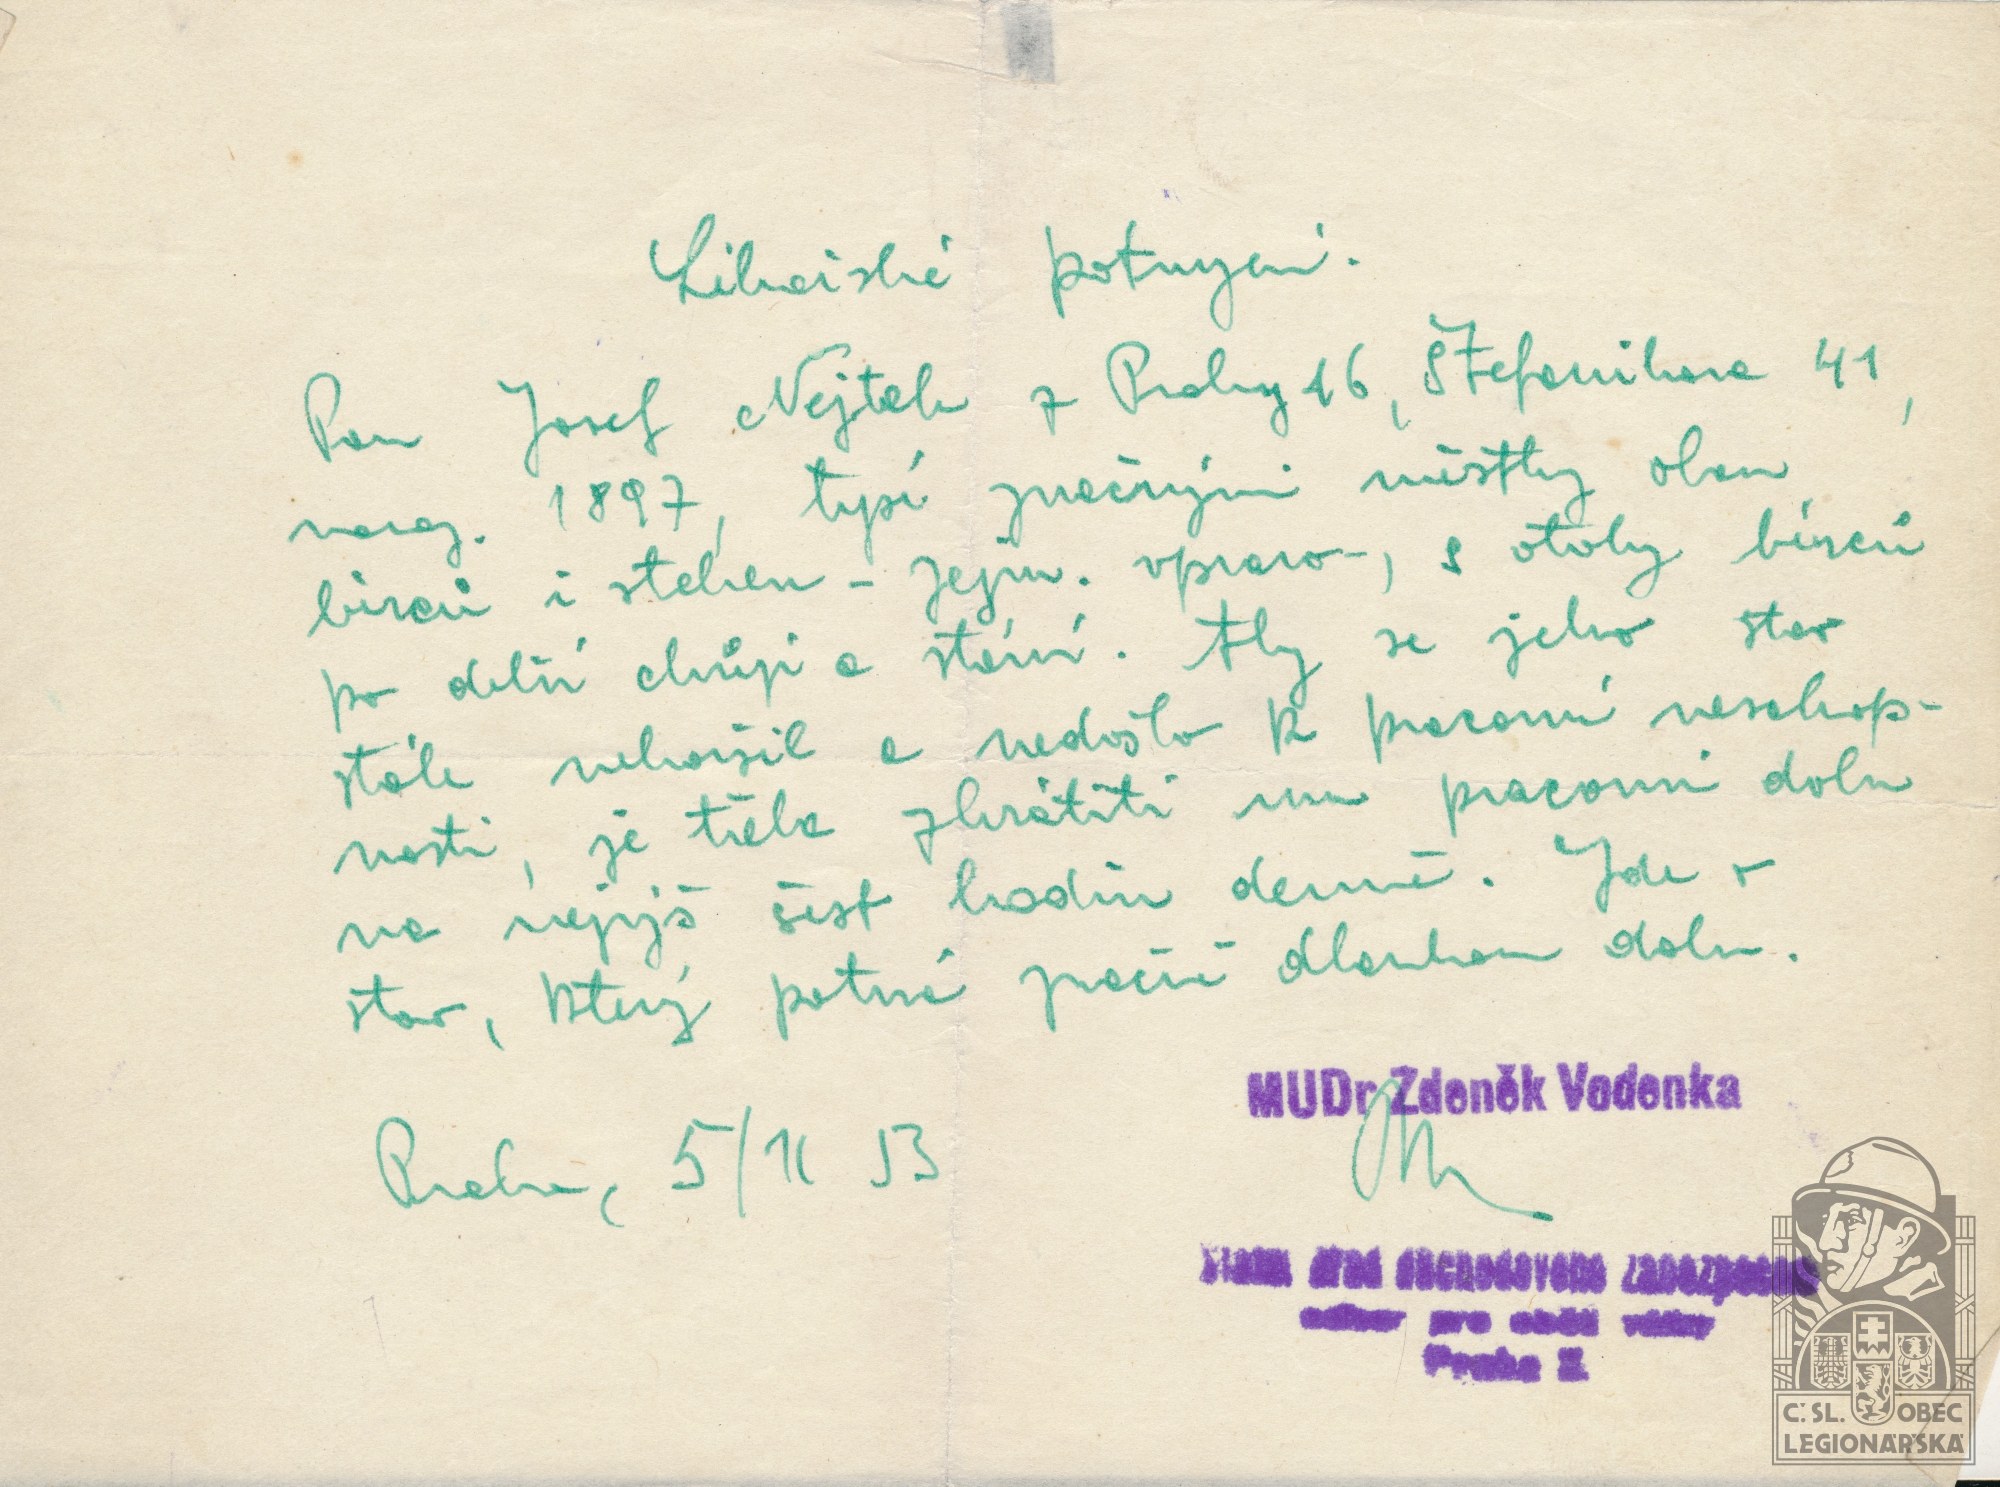 Lékařské potvrzení.
Pan Josef Nejtek z Prahy 16, Štefanikova 41,
naroz. 1897, trpí značnými městky obou
bérců i stehen - zejm. vpravo -, s otoky bérců
po delší chůzi a stání. Aby se jeho stav
stále nehoršil a nedošlo k pracovní neschop-
nosti, je třeba zkrátiti mu pracovní dobu
na nejvýš šest hodin denně. Jde o
stav, který potrvá značně dlouhou dobu.
MUDr Zdeněk Vodenka
Praha, 5/11 53
Státní úřad důchodového zabezpečení
odbor pro oběti války
Praha X
Č.SL. OBEC
LEGIONÁŘSKÁ